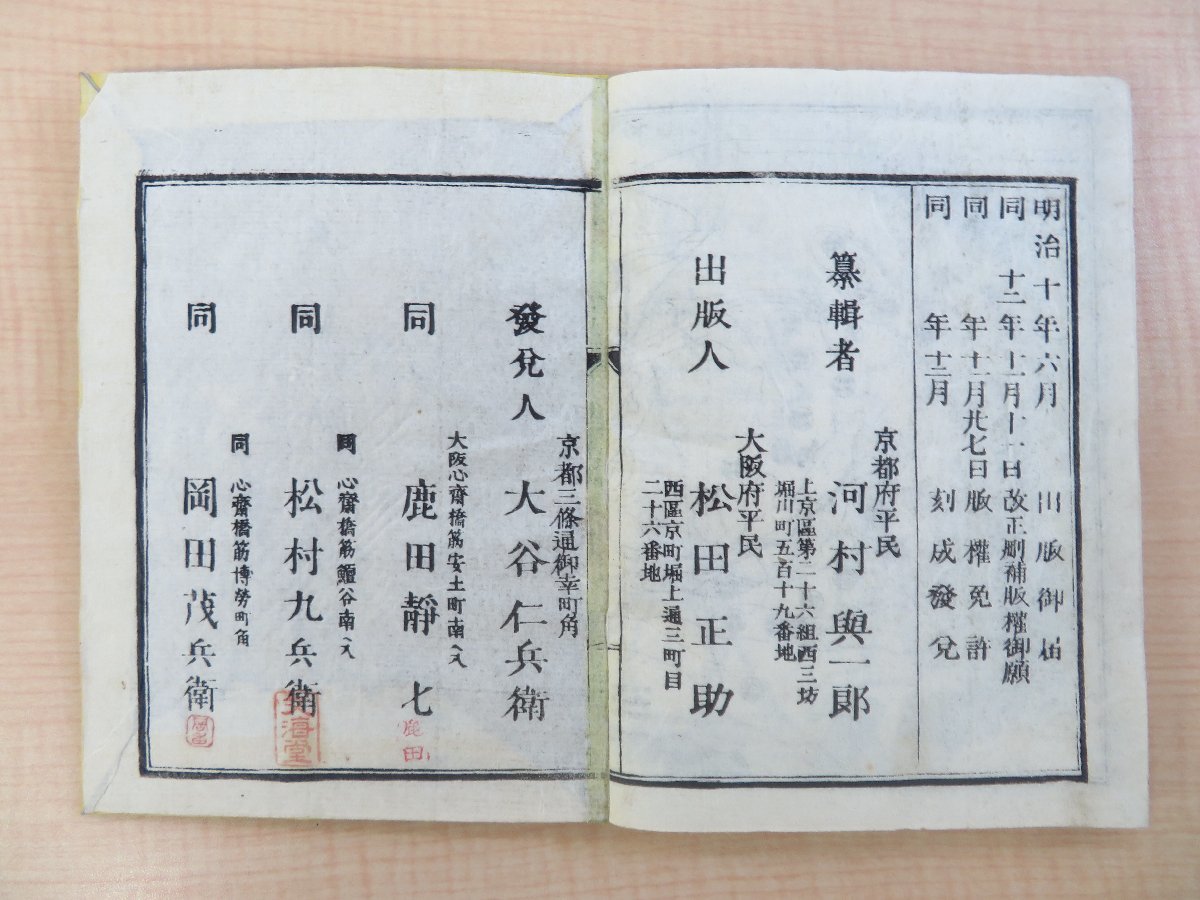 明治十年六月 出版御届
同 十二年十一月十一日改正刪補版權御願
同 年十一月廿七日版權免許
同 年十二月 刻成發兌
纂輯者
京都府平民
河村與一郎
上京區第二十六組西三坊
堀川町五百十九番地
出版人
大阪府平民
松田正助
西區京町堀上通三町目
二十六番地
發兌人
京都三條通御幸町角
大谷仁兵衛
同
大阪心齋橋筋安土町南ヘ入
鹿田靜七
鹿田
同
同 心齋橋筋鰻谷南ヘ入
松村九兵衛
海堂
同
同 心齋橋筋博勞町角
岡田茂兵衛